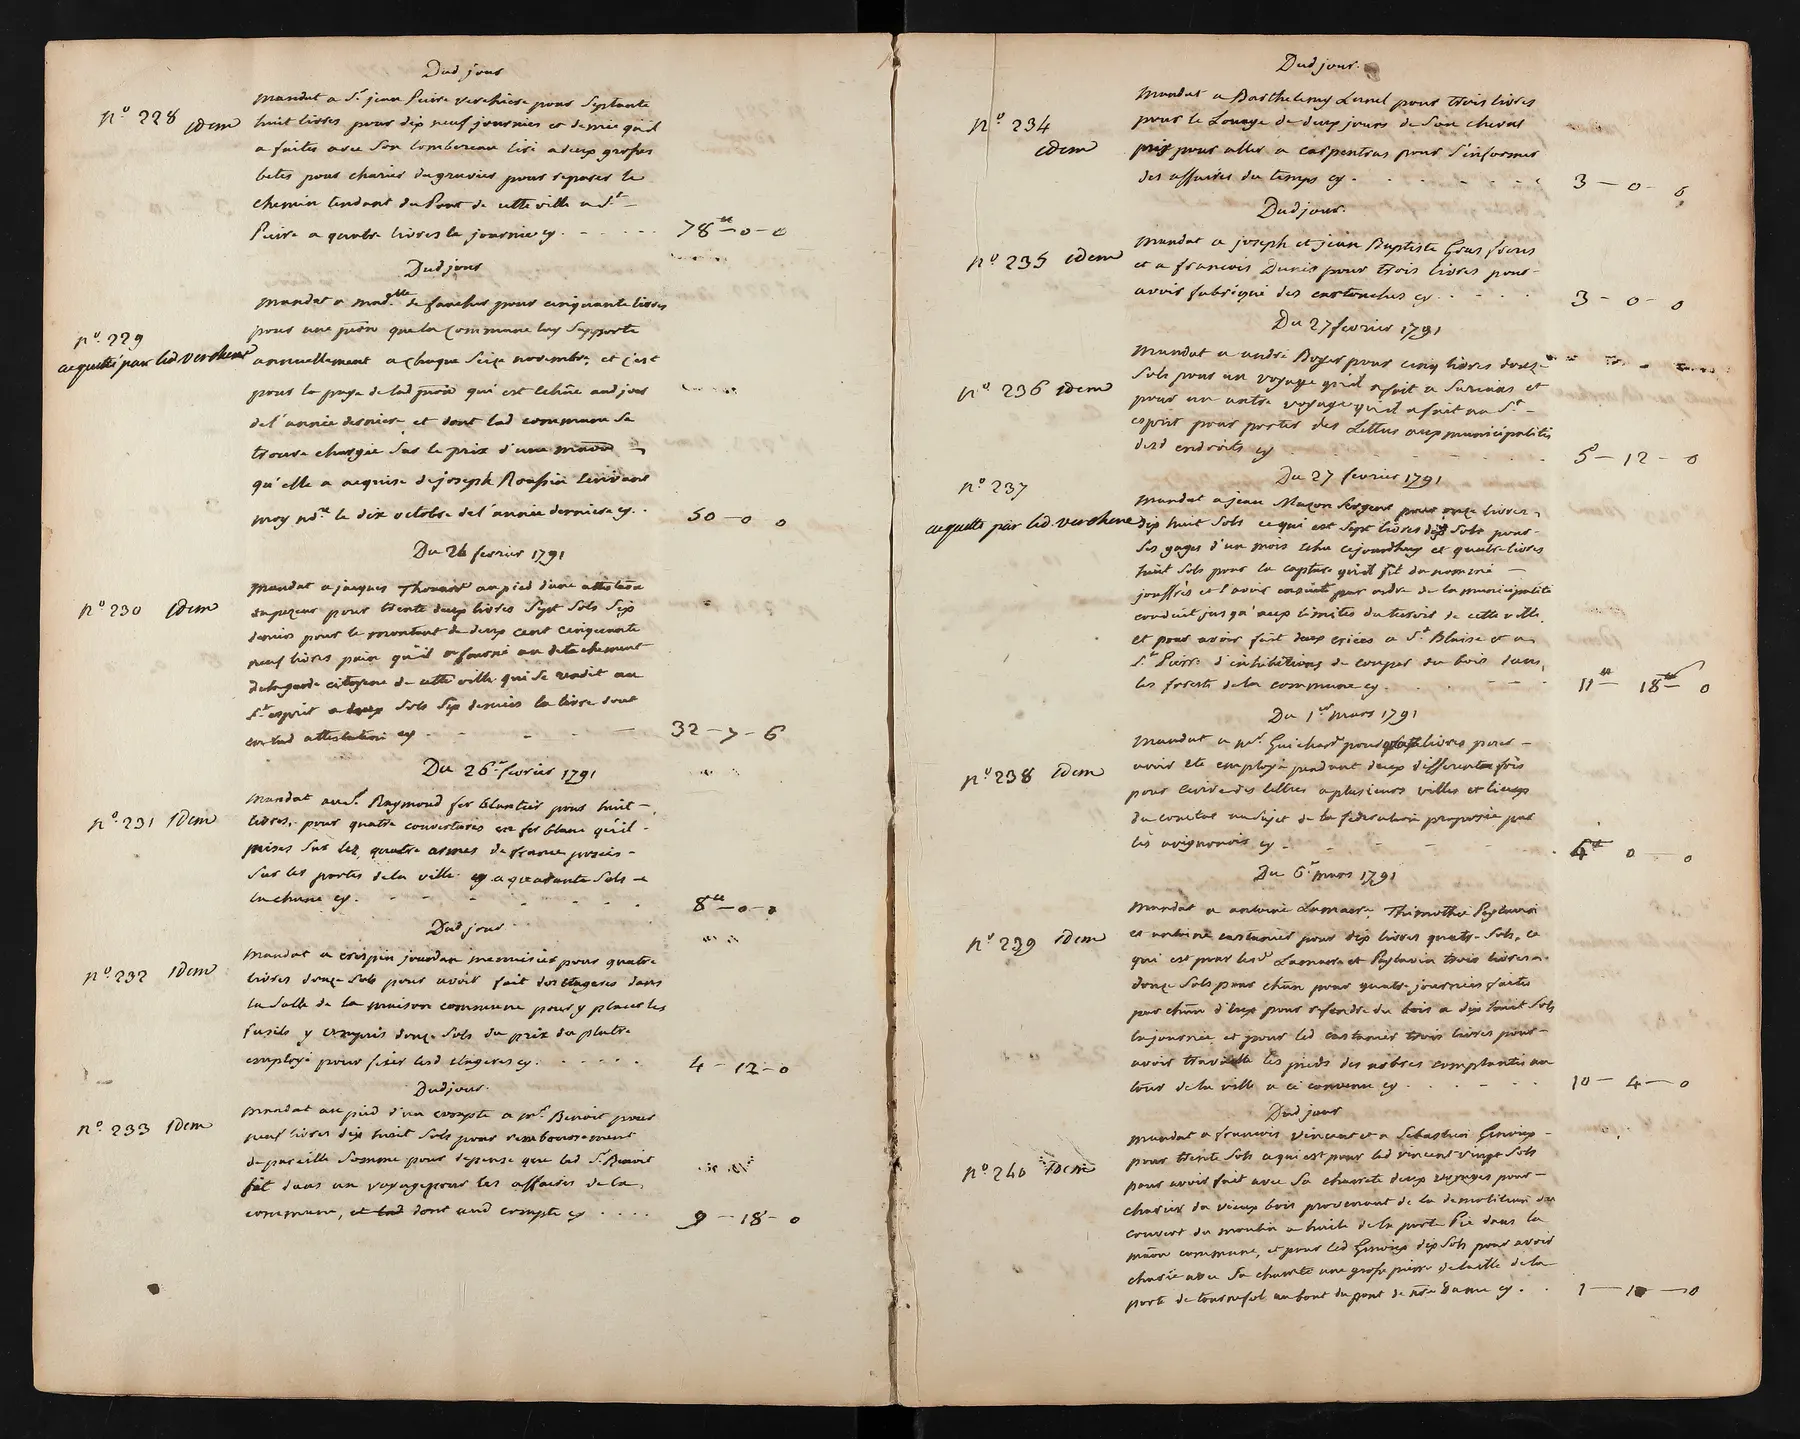 Dud jour
N.º 228 idem
mandat a Sr. jean Pierre verchiere pour Septante
huit livres pour dix neuf journées et demie qu'il
a faites avec Son tombereau tiré a deux grosses
betes pour charier du gravier pour reparer le
chemin tendant du Pont de cette ville a St.
Pierre a quatre livres la journée cy . . . . . 78tt—0—0
Dud jour
n.º 229
acquitté par led. verchere
mandat a madlle. de faucher pour cinquante livres
pour une p̃ion que la Commune luy Supporte
annuellement a chaque Seize novembre, et c'est
pour la paye de lad. p̃ion qui est echûe aud jour
de l'année derniere, et dont lad commune Se
trouve chargée Sur le prix d'une maison
qu'elle a acquise de joseph Roussin Ecrivant
moy nore. le dix octobre de l'année derniere cy . . 50—0—0
Du 26 fevrier 1791
N.º 230 idem
mandat a jaques Thomas au pied d'une attestaõn
du pezeur pour trente deux livres Sept Sols Six
deniers pour le montant de deux cent cinquante
neuf livres pain qu'il a fourni au detachement
de la garde citoyene de cette ville qui Se rendit au
St. esprit a deux Sols Six deniers la livre dont
en lad attestation cy - - - - 32—7—6
Du 26 fevrier 1791
N.º 231 idem
mandat au Sr. Raymond fer blantier pour huit
livres, pour quatre couvertures en fer blanc qu'il
mises Sur les quatre armes de france posées
Sur les portes de la ville cy a quarante Sols
la chune cy. - - - - 8tt—0—0
Dud jour
N.º 232 idem
mandat a crispin jourdan menuisier pour quatre
livres douze Sols pour avoir fait des etageres dans
la Salle de la maison commune pour y placer les
fusils y compris douze Sols du prix du platre
employé pour fixer lesd etageres cy. . . . . . 4—12—0
Dud jour
n.º 233 idem
mandat au pied d'un compte a mr. Benoit pour
neuf livres dix huit Sols pour remboursement
de pareille Somme pour depense que led Sr. Benoit
fit dans un voyage pour les affaires de la
commune, et dont aud compte cy . . . . 9—18—0
Dud jour.
N.º 234
idem
mandat a Barthelemy Lunel pour trois livres
pour le Louage de deux jours de Son cheval
pris pour aller a carpentras pour S'informer
des affaires du temps cy . . . . . . . 3—0—0
Dud jour.
N.º 235 idem
mandat a joseph et jean Baptiste Gras freres
et a francois Dunis pour trois livres pour
avoir fabriqué des cartouches cy . . . . . 3—0—0
Du 27 fevrier 1791
N.º 236 idem
mandat a andré Boyer pour cinq livres douze
Sols pour un voyage qu'il a fait a Surians et
pour un autre voyage qu'il a fait au St.
esprit pour porter des Lettres aux municipalités
desd endroits cy . . . . . . . 5—12—0
Du 27 fevrier 1791
N.º 237
acquitté par led. verchere
mandat a jean Maçon Sergent pour onze livres
dix huit Sols ce qui est Sept livres dix Sols pour
Ses gages d'un mois echu cejourdhuy et quatre livres
huit Sols pour la capture qu'il fit du nommé
jouffrés et l'avoir ensuite par ordre de la municipalité
conduit jusqu'aux limites du teroir de cette ville.
et pour avoir fait deux criées a St. Blaise et a
St. Pierre d'inhibitions de couper du bois dans
les forests de la commune cy. . . . 11tt—18—0
Du 1er mars 1791
n.º 238 idem
mandat a mr. Guichard pour livres pour
avoir eté employé pendant deux differentes fois
pour Ecrire des lettres a plusieurs villes et lieux
du comtat au Sujet de la federation proposée par
les avignonois cy - - - - - 4tt 0—0
Du 6r. mars 1791
n.º 239 idem
mandat a antoine Lamaer, Thimothée Peytavin
et antoine castanier pour dix livres quatre Sols, ce
qui est pour lesd Lamaer et Peytavin trois livres
douze Sols pour chûn pour quatre journées faites
par chûn d'eux pour refendre du bois a dix huit Sols
la journée et pour led castanier trois livres pour
avoir travaillé les pieds des arbres complantés au
tour de la ville a ce convenu cy . . . . . 10—4—0
Dud jour
N.º 240 idem
mandat a francois vincent et a Sebastien Ginoux
pour trente Sols ce qui est pour led vincent vingt Sols
pour avoir fait avec Sa charrete deux voyages pour
charier du vieux bois provenant de la demolition du
couvert du moulin a huile de la porte Pie dans la
maison commune, et pour led Ginoux dix Sols pour avoir
charié avec Sa charrete une grosse pierre de taille de la
porte de tournefol au bout du pont de nre Dame cy . . 1—10—0